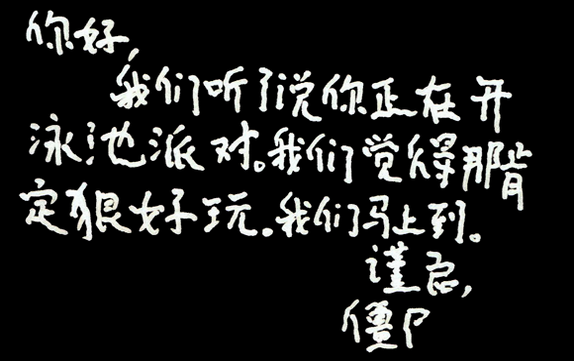 你好,
我们听了说你正在开
泳池派对。我们觉得那肯
定狠好玩。我们马上到。
谨启,
僵尸